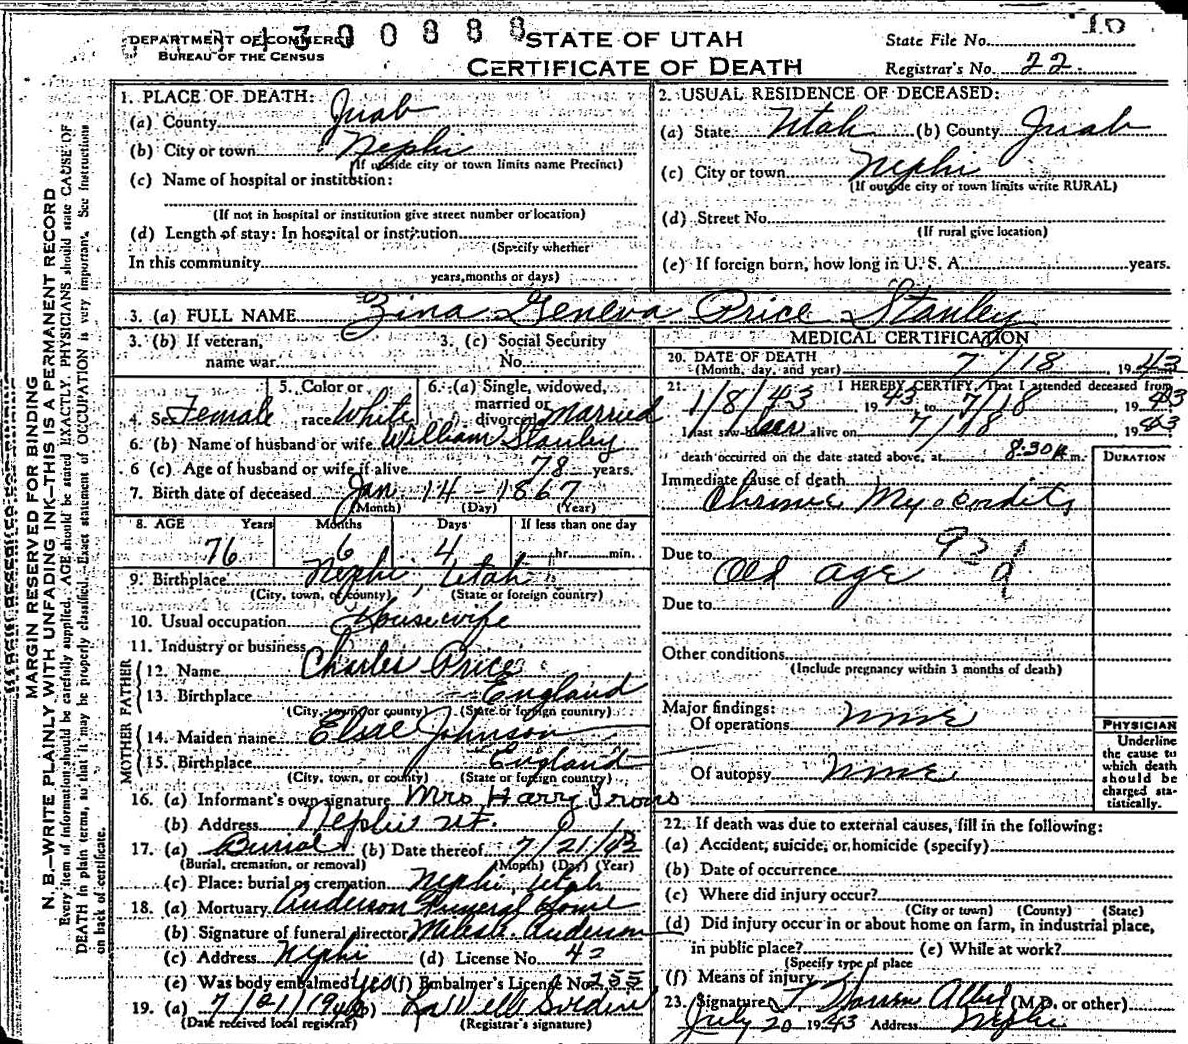 DEPARTMENT OF COMMERCE
BUREAU OF THE CENSUS
1300888
STATE OF UTAH
CERTIFICATE OF DEATH
State File No. 10
Registrar's No. 22
MARGIN RESERVED FOR BINDING
N. B.—WRITE PLAINLY WITH UNFADING INK—THIS IS A PERMANENT RECORD
Every item of information should be carefully supplied. AGE should be stated EXACTLY. PHYSICIANS should state CAUSE OF
DEATH in plain terms, so that it may be properly classified. Exact statement of OCCUPATION is very important. See instruction
on back of certificate.
1. PLACE OF DEATH:
(a) County Juab
(b) City or town Nephi
(If outside city or town limits name Precinct)
(c) Name of hospital or institution:
(If not in hospital or institution give street number or location)
(d) Length of stay: In hospital or institution
(Specify whether
In this community
years, months or days)
2. USUAL RESIDENCE OF DECEASED:
(a) State Utah (b) County Juab
(c) City or town Nephi
(If outside city or town limits write RURAL)
(d) Street No.
(If rural give location)
(e) If foreign born, how long in U. S. A. years.
3. (a) FULL NAME Zina Geneva Price Stanley
3. (b) If veteran, name war
3. (c) Social Security No.
4. Sex Female
5. Color or race White
6. (a) Single, widowed, married or divorced Married
6. (b) Name of husband or wife William Stanley
6 (c) Age of husband or wife if alive 78 years.
7. Birth date of deceased Jan 14 - 1867
(Month) (Day) (Year)
8. AGE Years Months Days If less than one day
76 6 4 hr. min.
9. Birthplace Nephi, Utah
(City, town, or county) (State or foreign country)
10. Usual occupation Housewife
11. Industry or business
FATHER
12. Name Charles Price
13. Birthplace England
(City, town or county) (State or foreign country)
MOTHER
14. Maiden name Johnson
15. Birthplace England
(City, town, or county) (State or foreign country)
16. (a) Informant's own signature Mrs Harry
(b) Address Nephi Ut.
17. (a) Burial (b) Date thereof 7/21/43
(Burial, cremation, or removal) (Month) (Day) (Year)
(c) Place: burial or cremation Nephi, Utah
18. (a) Mortuary Anderson Funeral Home
(b) Signature of funeral director Anderson
(c) Address Nephi (d) License No. 42
(e) Was body embalmed Yes (f) Embalmer's License No. 255
19. (a) 7/21/19 (b)
(Date received local registrar) (Registrar's signature)
MEDICAL CERTIFICATION
20. DATE OF DEATH
(Month, day, and year) 7/18, 1943
21. I HEREBY CERTIFY, That I attended deceased from
1/8/43, 1943, to 7/18, 1943
I last saw her alive on 7/18 1943
death occurred on the date stated above, at 8:30 m.
DURATION
Immediate cause of death
Chronic Myocarditis
93 d
Due to Old age
Due to
Other conditions
(Include pregnancy within 3 months of death)
Major findings:
Of operations none
Of autopsy none
PHYSICIAN
Underline
the cause to
which death
should be
charged sta-
tistically.
22. If death was due to external causes, fill in the following:
(a) Accident, suicide, or homicide (specify)
(b) Date of occurrence
(c) Where did injury occur?
(City or town) (County) (State)
(d) Did injury occur in or about home on farm, in industrial place,
in public place? (e) While at work?
(Specify type of place
(f) Means of injury
23. Signature (M.D. or other)
July 20 1943 Address Nephi